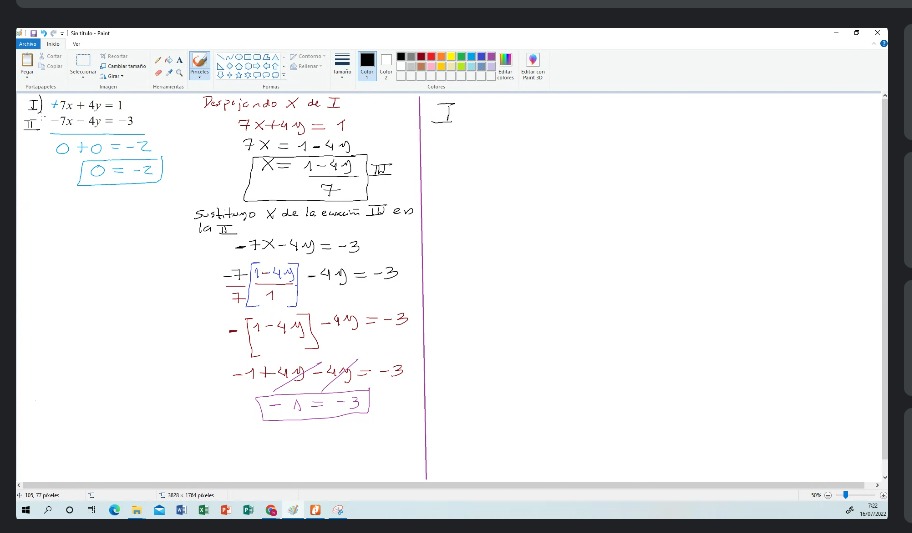 Sin título - Paint
Archivo Inicio Ver
Pegar
Cortar
Copiar
Portapapeles
Seleccionar
Recortar
Cambiar tamaño
Girar
Imagen
Herramientas
Pinceles
Formas
Contorno
Rellenar
Tamaño
Color 1
Color 2
Colores
Editar colores
Editar con Paint 3D
I) +7x + 4y = 1
II -7x - 4y = -3
0 + 0 = -2
0 = -2
Despejando X de I
7X+4y = 1
7X = 1-4y
X = 1-4y / 7 III
Sustituyo X de la ecuación III en
la II
-7X-4y = -3
-7/7 [1-4y / 1] -4y = -3
-[1-4y] -4y = -3
-1+4y-4y = -3
-1 = -3
I
105, 77 píxeles
3828 × 1764 píxeles
50%
7:22
16/07/2022